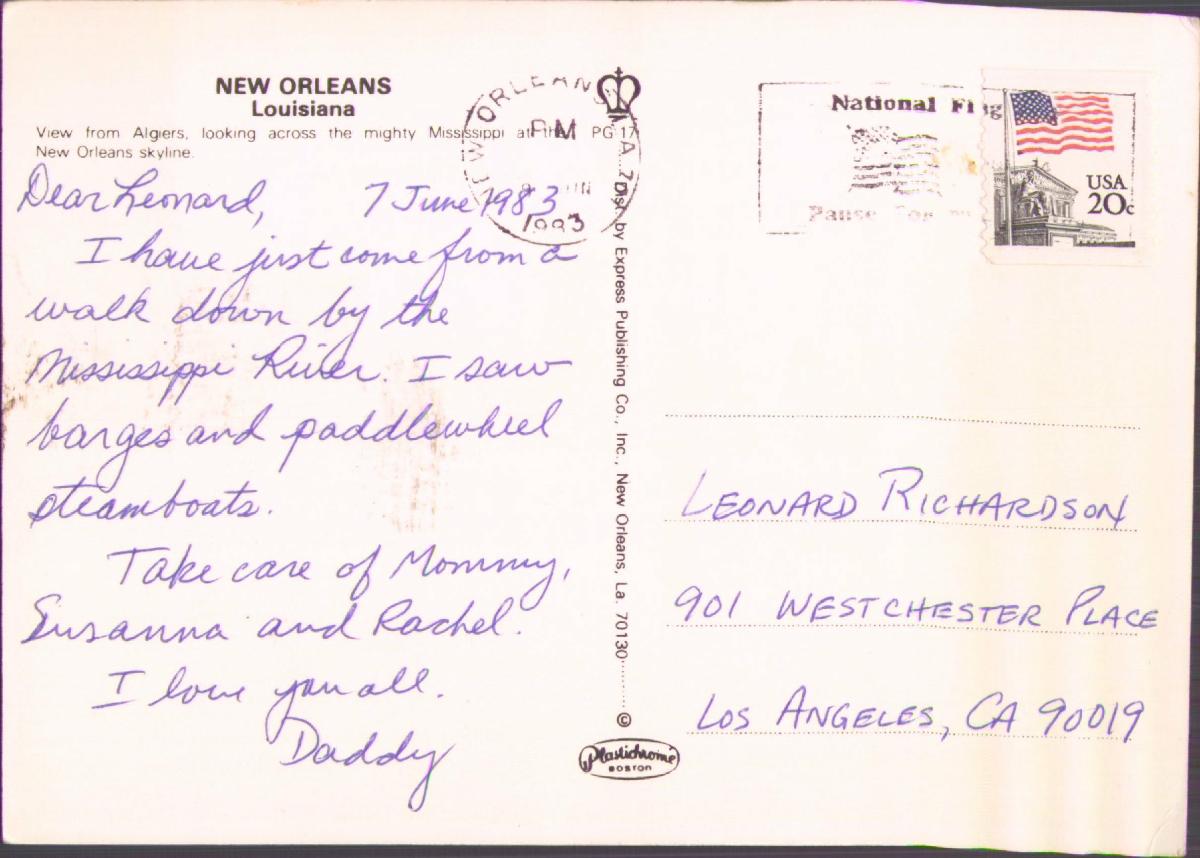 NEW ORLEANS
Louisiana
View from Algiers, looking across the mighty Mississippi at the PG 17
New Orleans skyline.
Dear Leonard, 7 June 1983
I have just come from a
walk down by the
Mississippi River. I saw
barges and paddlewheel
steamboats.
Take care of Mommy,
Susanna and Rachel.
I love you all.
Daddy
NEW ORLEANS
PM
1983
Dist. by Express Publishing Co., Inc., New Orleans, La. 70130
©
Plastichrome
BOSTON
National Flag
Pause For
USA
20c
LEONARD RICHARDSON
901 WESTCHESTER PLACE
LOS ANGELES, CA 90019